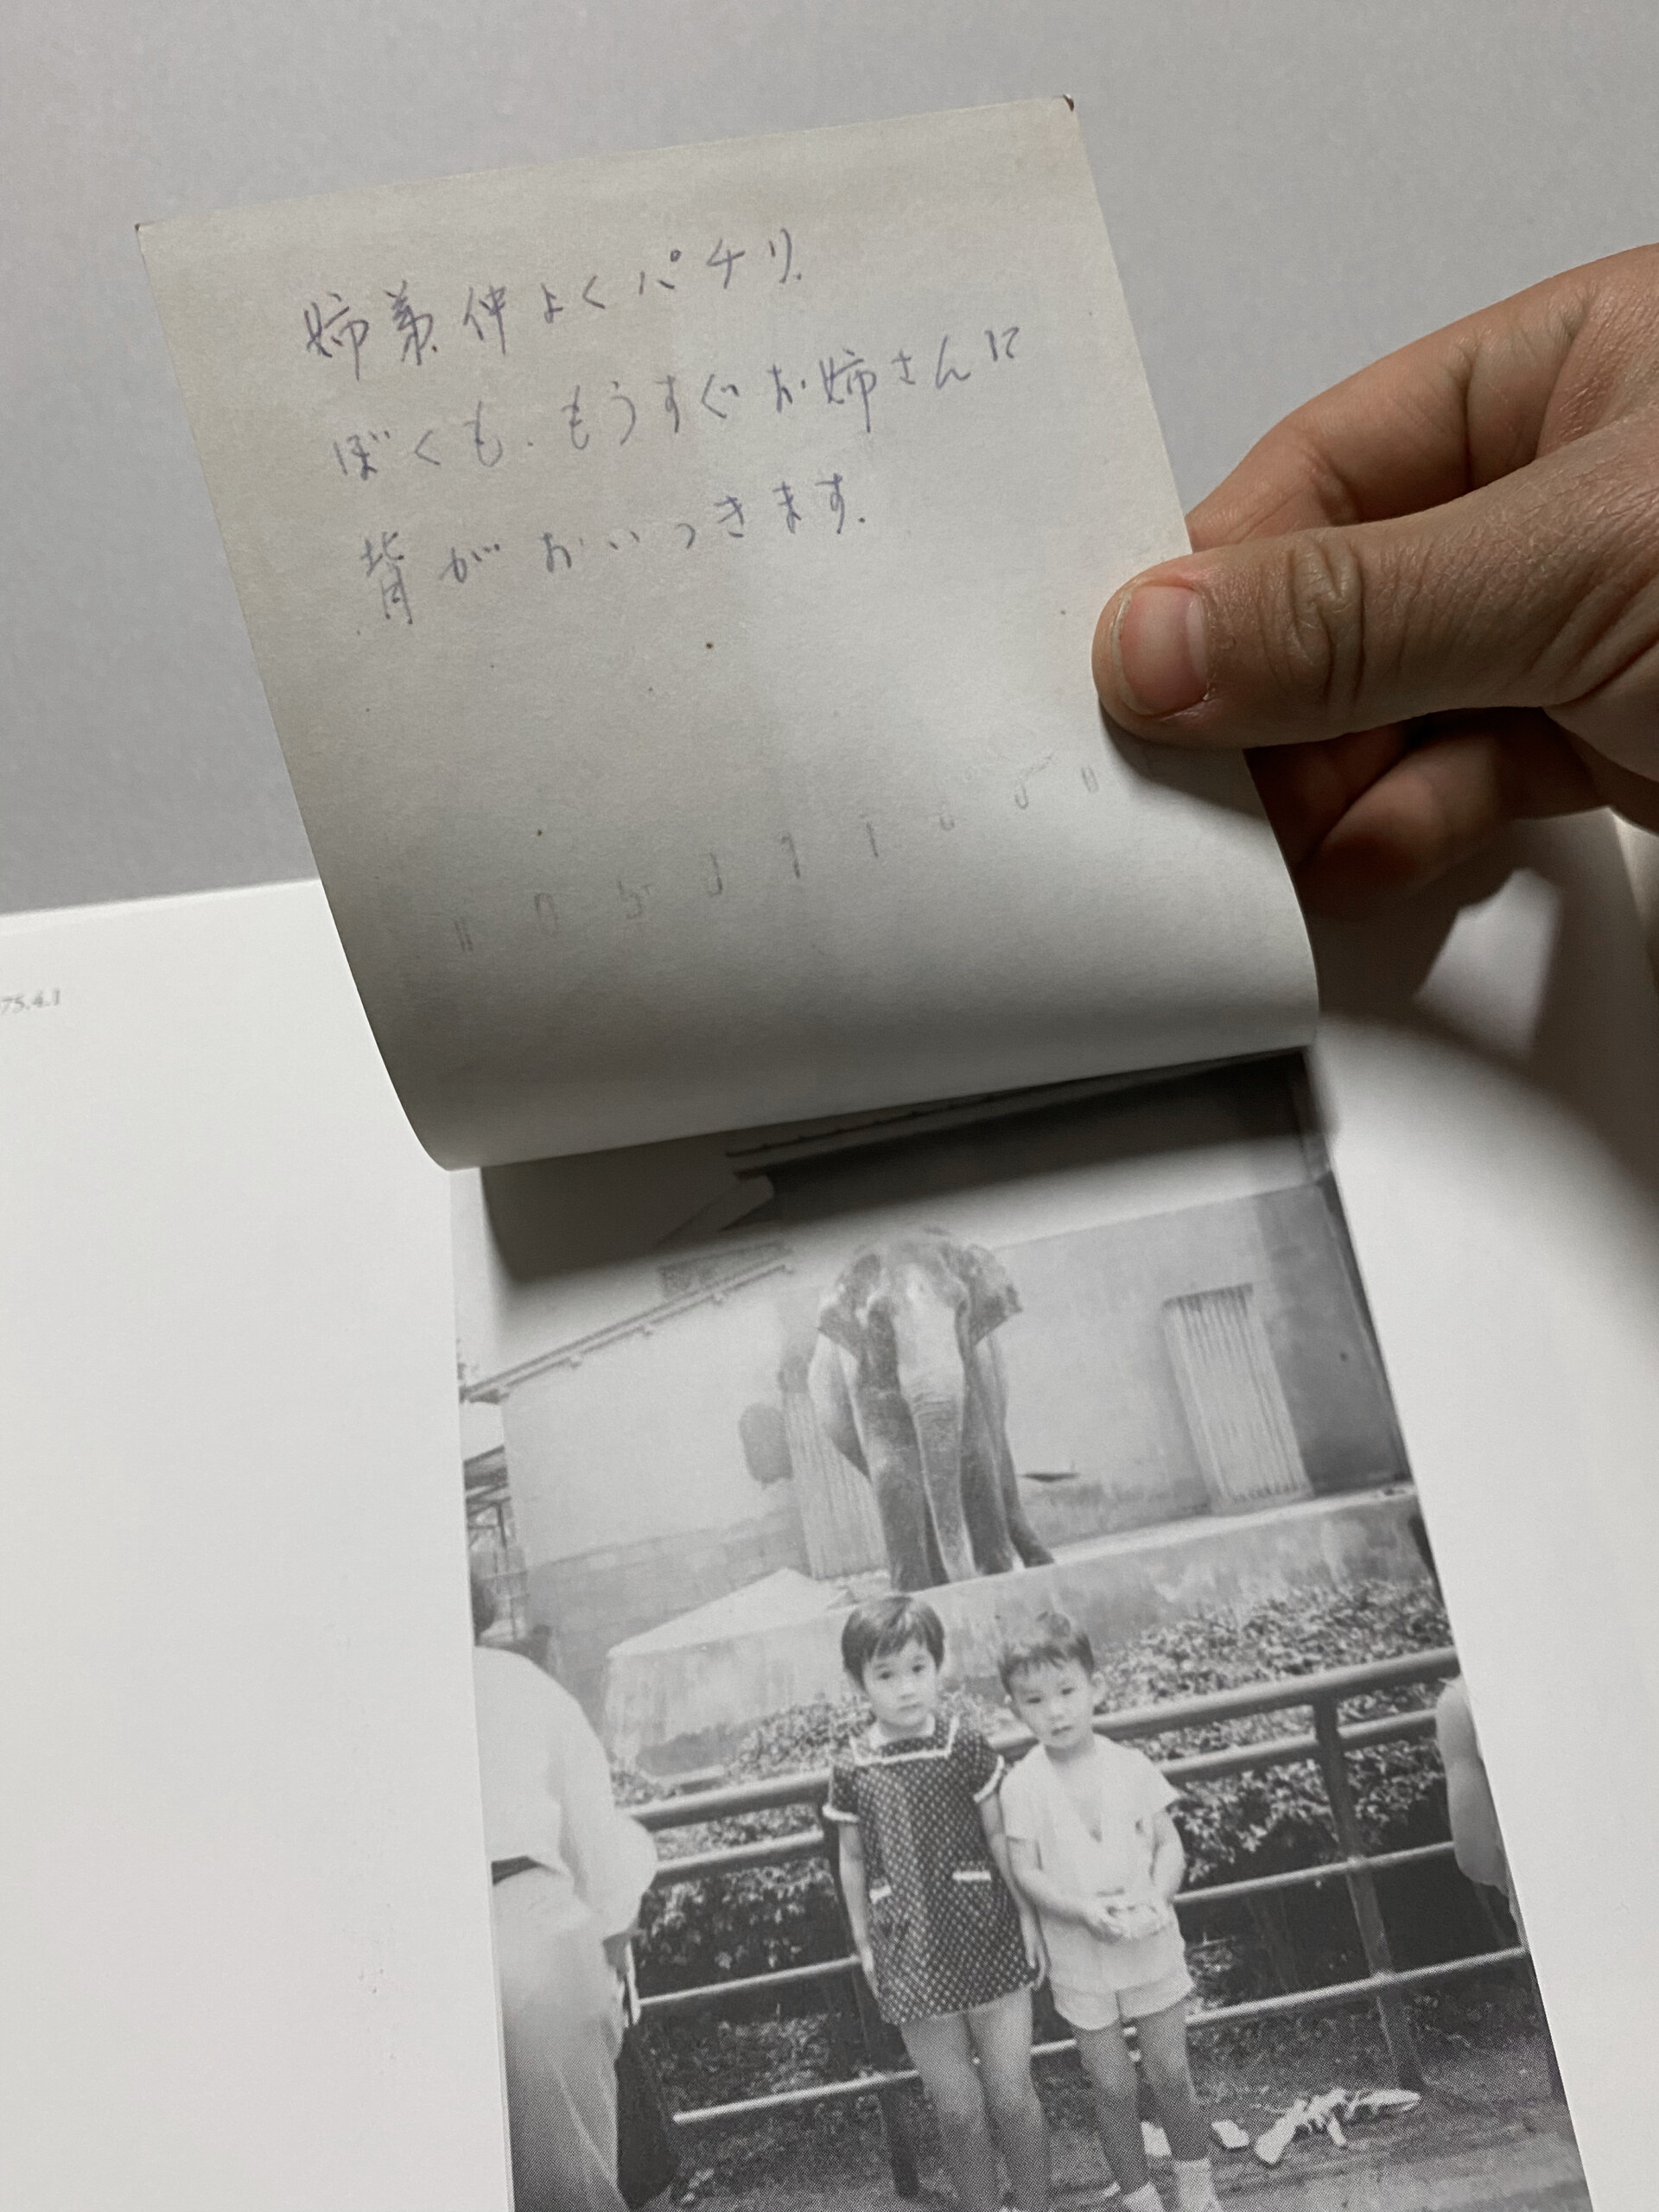 姉弟仲よくパチリ.
ぼくも.もうすぐお姉さんに
背がおいつきます.
75.4.1